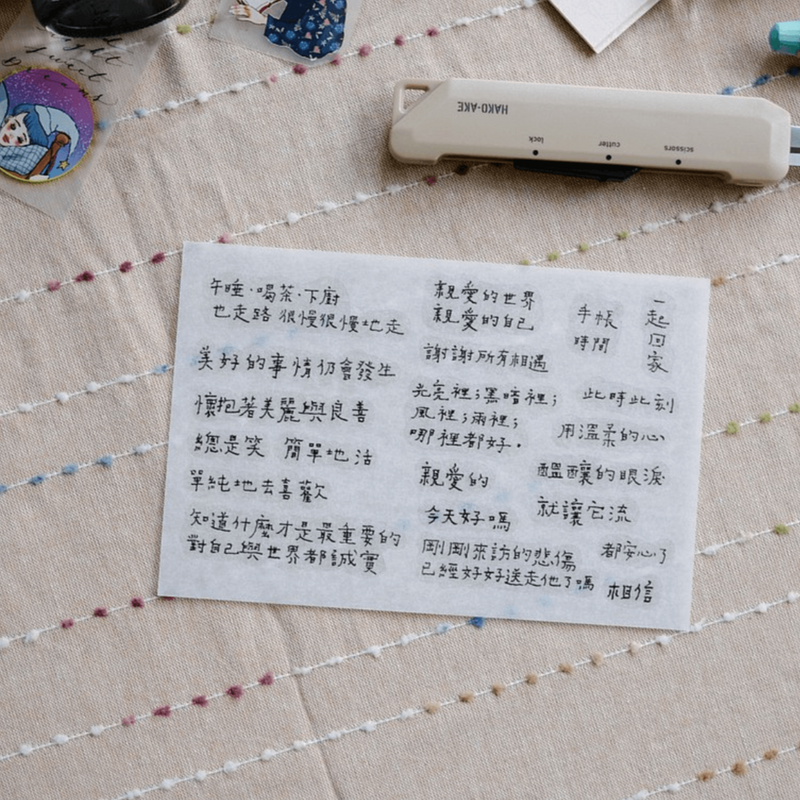 Sweet
HAKO-AKE
lock
cutter
scissors
午睡·喝茶·下廚
也走路 很慢很慢地走
美好的事情仍會發生
懷抱著美麗與良善
總是笑 簡單地活
單純地去喜歡
知道什麼才是最重要的
對自己與世界都誠實
親愛的世界
親愛的自己
謝謝所有相遇
光亮裡；黑暗裡；
風裡；雨裡；
哪裡都好．
親愛的
今天好嗎
剛剛來訪的悲傷
已經好好送走他了嗎
手帳
時間
一起回家
此時此刻
用溫柔的心
醞釀的眼淚
就讓它流
都安心了
相信